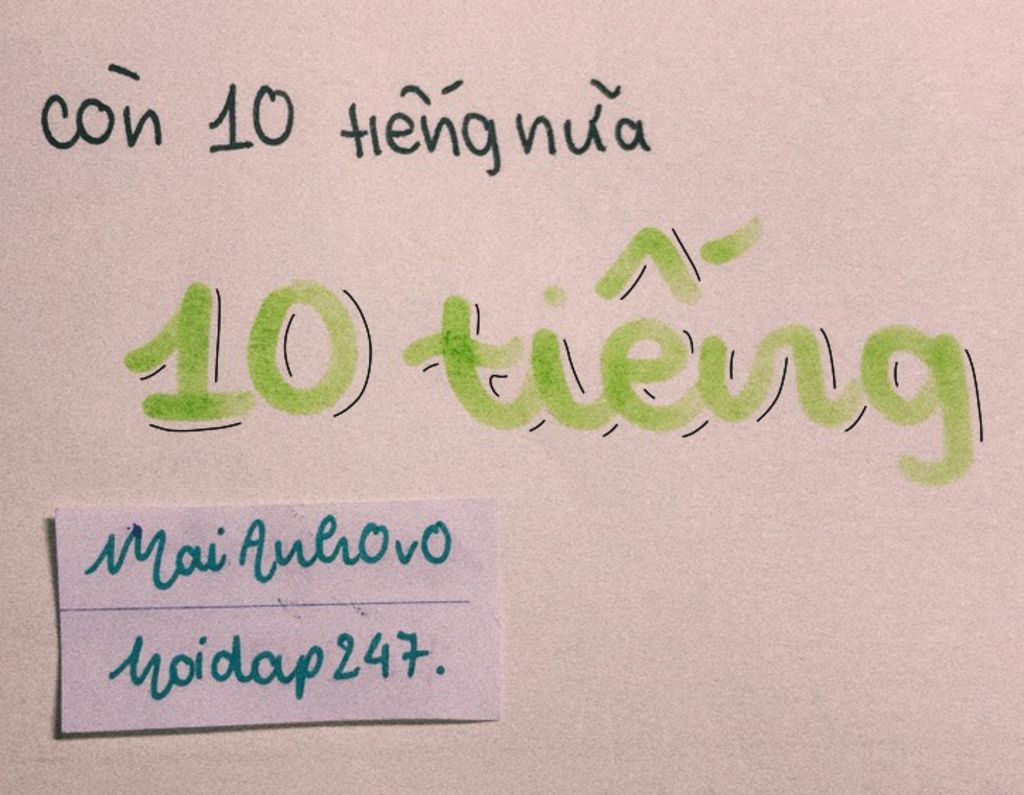 còn 10 tiếng nữa
10 tiếng
MaiAnhOvO
hoidap247.